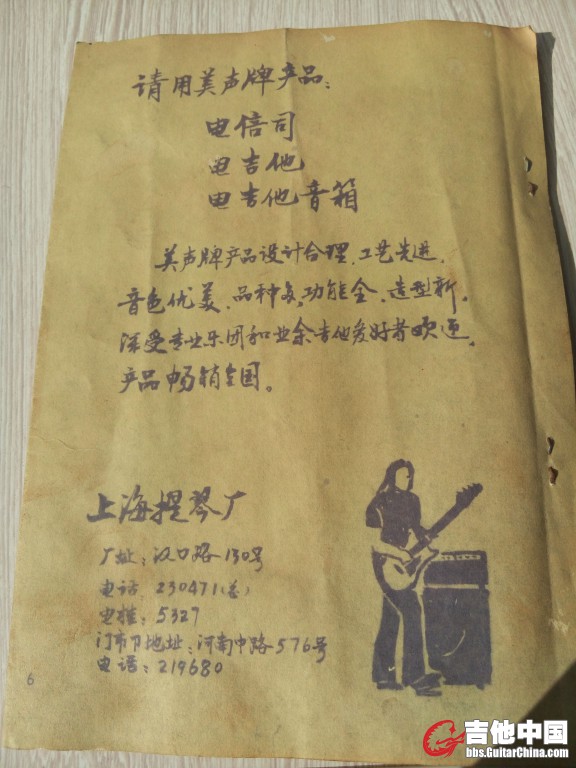 请用美声牌产品:
电倍司
电吉他
电吉他音箱
美声牌产品设计合理、工艺先进、
音色优美、品种多、功能全、造型新。
深受专业乐团和业余吉他爱好者欢迎,
产品畅销全国。
上海提琴厂
厂址:汉口路130号
电话 230471(总)
电挂:5327
门市部地址:河南中路576号
电话:219680
6
吉他中国
bbs.GuitarChina.com